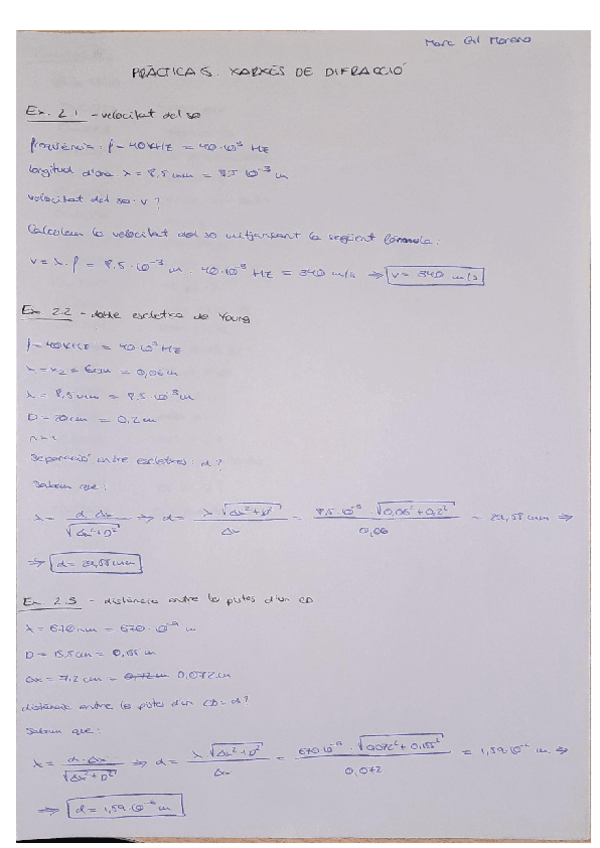 Marc Gil Moreno
PRÀCTICA 5. XARXES DE DIFRACCIÓ
Ex. 2.1 - velocitat del so
freqüència: f = 40KHz = 40·10³ Hz
longitud d'ona λ = 8,5 mm = 8,5·10⁻³ m
velocitat del so: v?
Calculem la velocitat del so mitjançant la següent fórmula:
v = λ·f = 8,5·10⁻³ m · 40·10³ Hz = 340 m/s ⇒ v = 340 m/s
Ex 2.2 - doble escletxa de Young
f = 40KHz = 40·10³ Hz
= 6cm = 0,06m
λ = 8,5mm = 8,5·10⁻³m
D = 20cm = 0,2m
n = 1
Separació entre escletxes: d?
Sabem que:
λ = d·Δx / √(Δx²+D²) ⇒ d = λ√(Δx²+D²) / Δx = 8,5·10⁻³ · √(0,06²+0,2²) / 0,06 = 29,58 mm ⇒
⇒ d = 29,58 mm
Ex. 2.3 - distància entre les pistes d'un CD
λ = 670nm = 670·10⁻⁹ m
D = 15,5cm = 0,155 m
Δx = 7,2 cm = 0,072m
distància entre les pistes d'un CD = d?
Sabem que:
λ = d·Δx / √(Δx²+D²) ⇒ d = λ√(Δx²+D²) / Δx = 670·10⁻⁹ · √(0,072²+0,155²) / 0,072 = 1,59·10⁻⁶ m ⇒
⇒ d = 1,59·10⁻⁶ m